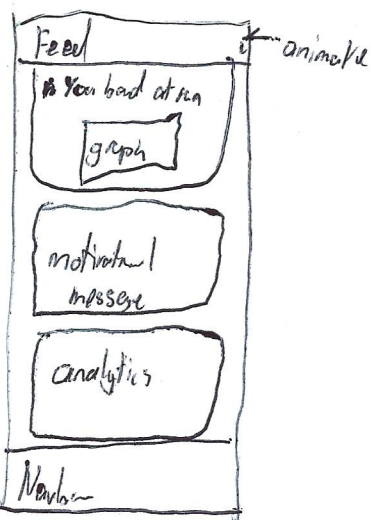 Feed
animate
You
graph
motivational
message
analytics
Navbar